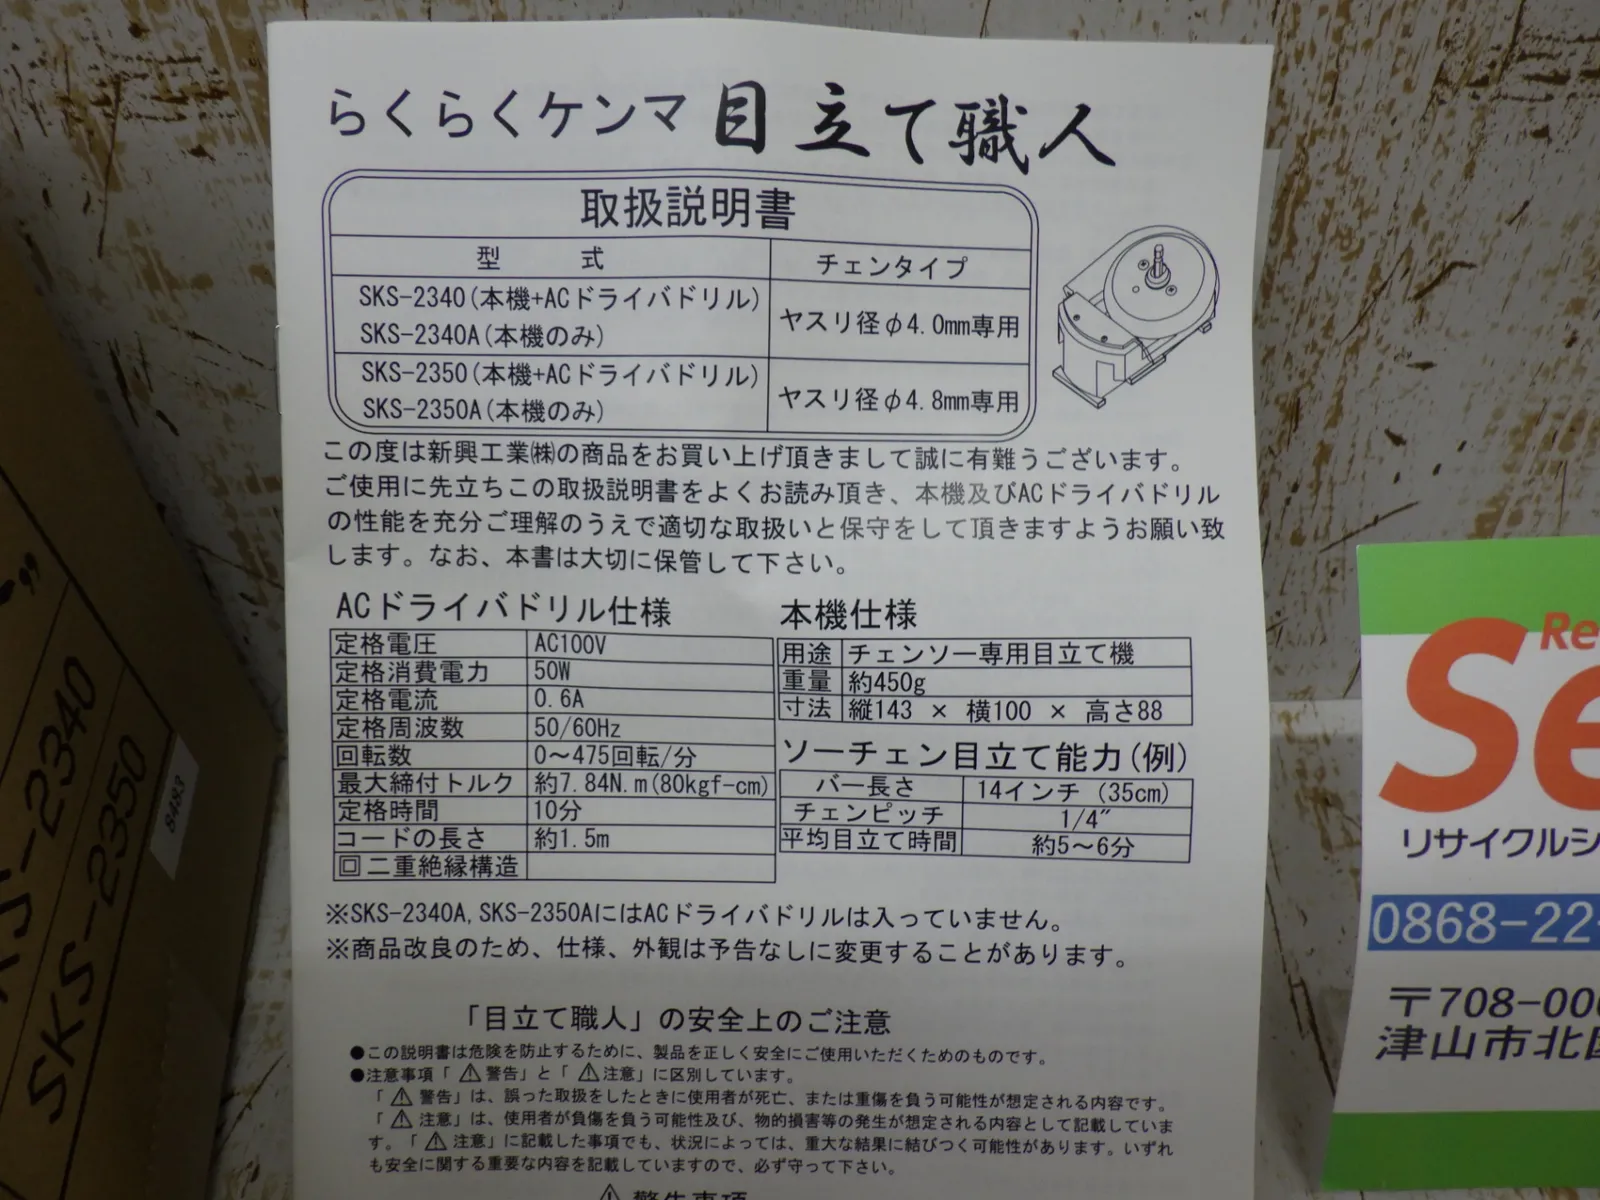 らくらくケンマ 目立て職人
取扱説明書
型 式 チェンタイプ
SKS-2340(本機+ACドライバドリル)
SKS-2340A(本機のみ)
ヤスリ径φ4.0mm専用
SKS-2350(本機+ACドライバドリル)
SKS-2350A(本機のみ)
ヤスリ径φ4.8mm専用
この度は新興工業㈱の商品をお買い上げ頂きまして誠に有難うございます。
ご使用に先立ちこの取扱説明書をよくお読み頂き、本機及びACドライバドリル
の性能を充分ご理解のうえで適切な取扱いと保守をして頂きますようお願い致
します。なお、本書は大切に保管して下さい。
ACドライバドリル仕様
定格電圧 AC100V
定格消費電力 50W
定格電流 0.6A
定格周波数 50/60Hz
回転数 0～475回転/分
最大締付トルク 約7.84N.m(80kgf-cm)
定格時間 10分
コードの長さ 約1.5m
回 二重絶縁構造
本機仕様
用途 チェンソー専用目立て機
重量 約450g
寸法 縦143 × 横100 × 高さ88
ソーチェン目立て能力(例)
バー長さ 14インチ (35cm)
チェンピッチ 1/4″
平均目立て時間 約5～6分
※SKS-2340A,SKS-2350AにはACドライバドリルは入っていません。
※商品改良のため、仕様、外観は予告なしに変更することがあります。
「目立て職人」の安全上のご注意
●この説明書は危険を防止するために、製品を正しく安全にご使用いただくためのものです。
●注意事項「⚠警告」と「⚠注意」に区別しています。
「⚠ 警告」は、誤った取扱をしたときに使用者が死亡、または重傷を負う可能性が想定される内容です。
「⚠ 注意」は、使用者が負傷を負う可能性及び、物的損害等の発生が想定される内容として記載していま
す。「⚠ 注意」に記載した事項でも、状況によっては、重大な結果に結びつく可能性があります。いずれ
も安全に関する重要な内容を記載していますので、必ず守って下さい。
⚠ 警告事項
SKS-2340
SKS-2350
8483
Re
Se
リサイクルシ
0868-22-
〒708-00
津山市北区